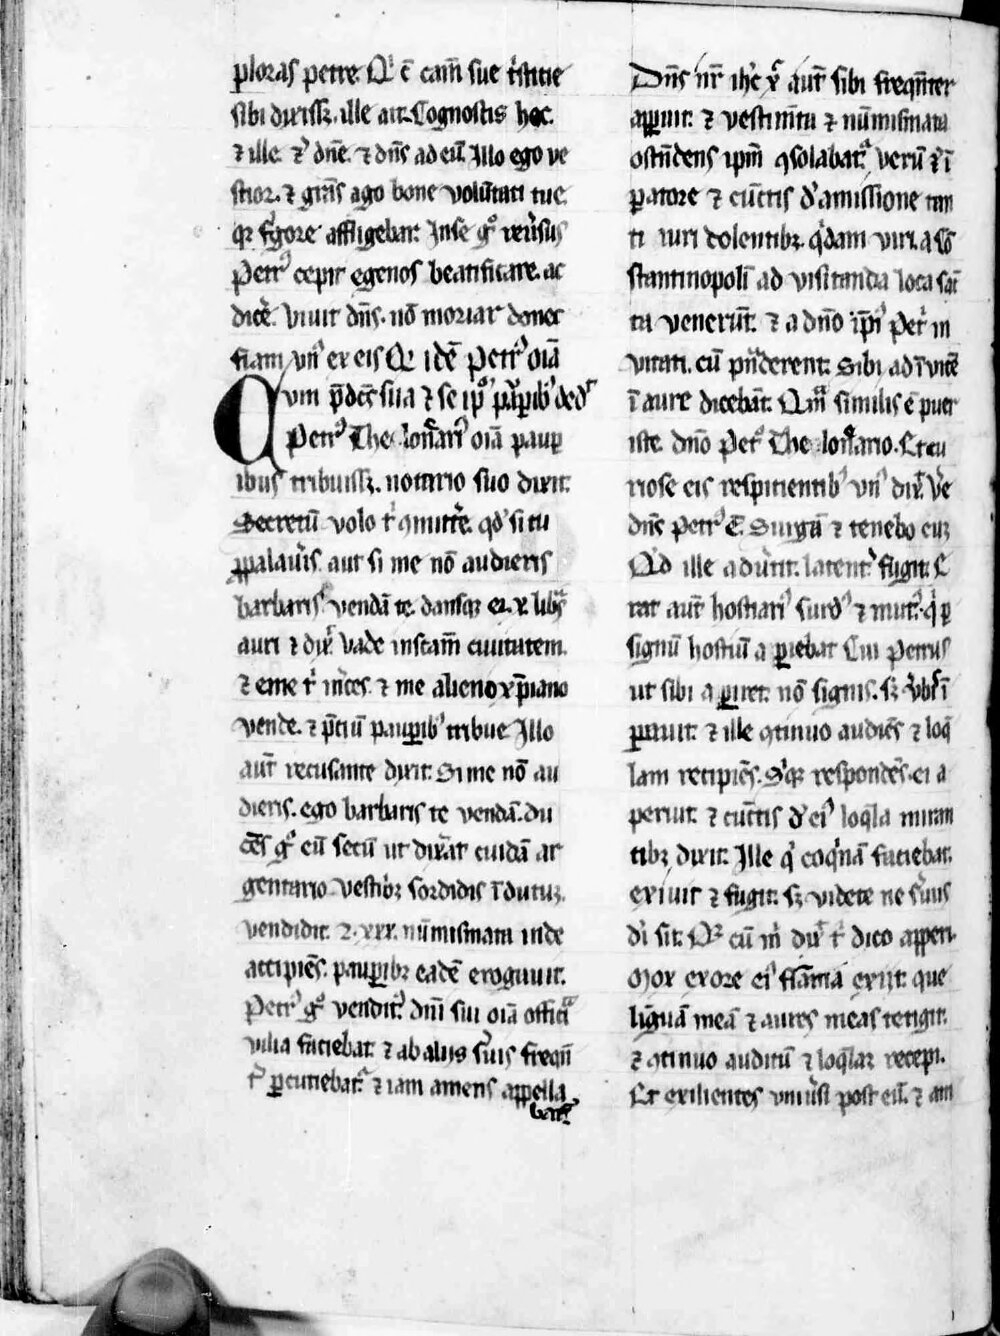 ploras petre. Qͥ ē cām̄ sue tͥstitie
sibi dixissꝫ. ille ait. Cognostis hoc.
⁊ ille. ⁊ͥ dn̄e. ⁊ dn̄s ad eū Illo ego ve
stior. ⁊ gr̄as ago bone volūtati tue.
qꝛ fͥgore affligebar. In se gͦ reuͥsus
Petrꝰ cepit egenos beatificare. ac
dicē. Viuit dn̄s. nō moriar donec
fiam vnꝰ ex eis Qͥ idē Petrꝰ oīa
Qvm p̄dc̄ē sua ⁊ se ip̄ꝰ pauꝑibꝰ dedͥ
Petrꝰ Thelonariꝰ oīa pauꝑ
ibus tribuissꝫ. notario suo dixit.
Secretū volo tͥ ꝯmittͥe. qd̓ si tu
ꝓpalauͥis. aut si me nō audieris
barbaris vendā te. dansqꝫ ei. x. libͣs
auri ⁊ dix̄. Vade in sc̄am ciuitatem.
⁊ eme tͥ mͥces. ⁊ me alieno xp̄iano
vende. ⁊ p̄ciū pauꝑibꝰ tribue. Illo
aut̄ recusante dixit. Si me nō au
dieris. ego barbaris te vendā. du
cēs gͦ eū secū ut dix̄at cuidā ar
gentario vestibꝫ sordidis īdutuꝫ.
vendidit. ⁊ .xxx. nūmismata inde
accipiēs. pauꝑibꝫ eadē erogauit.
Petrꝰ gͦ venditꝰ dn̄i sui oīa officia
vilia faciebat. ⁊ ab aliis sͥuis freqn̄
tͥ ꝑcutiebatͬ. ⁊ iam amens appella
batͬ.
Dn̄s nr̄ ih̄c xͤ aut̄ sibi freqn̄ter
apparuit. ⁊ vestimn̄ta ⁊ nūmismata
ostn̄dens ip̄m ꝯsolabatͬ. Verū ⁊ͥ ī
ꝑatore ⁊ cūctis d̓ amissione tan
ti viri dolentibꝫ. qͥdam viri. a 9
stantinopoli ad visitanda loca sāc
ta venerūt. ⁊ a dn̄o ip̄iꝰ petͥ in
vitati. cū pn̄derent. Sibi ad ī vicē
ī aure dicebāt. Qm̄ similis ē puer
iste. dn̄o Petͦ Thelonario. Et cu
riose eis respitientibꝰ vnꝰ dix̄. Ve
dn̄s petrꝰ ē. Surgā ⁊ tenebo euꝫ
Qd̓ ille adūtit. latent̄ fugit. E
rat aut̄ hostiariꝰ surdꝰ ⁊ mutꝰ. qͥ ꝑ
signū hostiū aꝑiebat. Cui Petrus
ut sibi aꝑiret. nō signis. sꝫ ūbis ī
ꝑauit. ⁊ ille ꝯtinuo audiēs ⁊ loq̄
lam recipiēs. Sͥqꝫ respondēs. ei a
peruit. ⁊ cūctis d̓ eiꝰ loq̄la miran
tibꝫ dixit. Ille qͥ coqͥnā faciebat.
exiuit ⁊ fugit. sꝫ videte ne sͥuus
dī sit. Qꝛ cū mͥ dix̄ tͥ dico apperi.
Mox ex ore eiꝰ flāma exijt. que
linguā meā ⁊ aures meas tetigit.
⁊ ꝯtinuo auditū ⁊ loq̄laꝫ recepi.
Et exilientes vniūsi post eū. ⁊ am